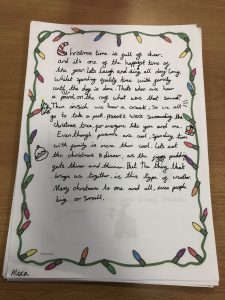 Christmas time is full of cheer,
and it's one of the happiest time of
the year. lets laugh and sing all day long,
Whilst spending quality time with family
until the day is done. That's when we hear
a pound on the roof what was that sound?
Then inside we hear a creak, So we all
go to take a peek. presents were surrounding the
christmas tree, for everyone like you and me.
Even though presents are cool, Spending time
with family is more than cool. Lets eat
the christmas dinner, as the figgy pudding
gets thiner and thiner. But the thing that
brings us together is this type of weather.
Mery christmas to one and all, even people
big or small.